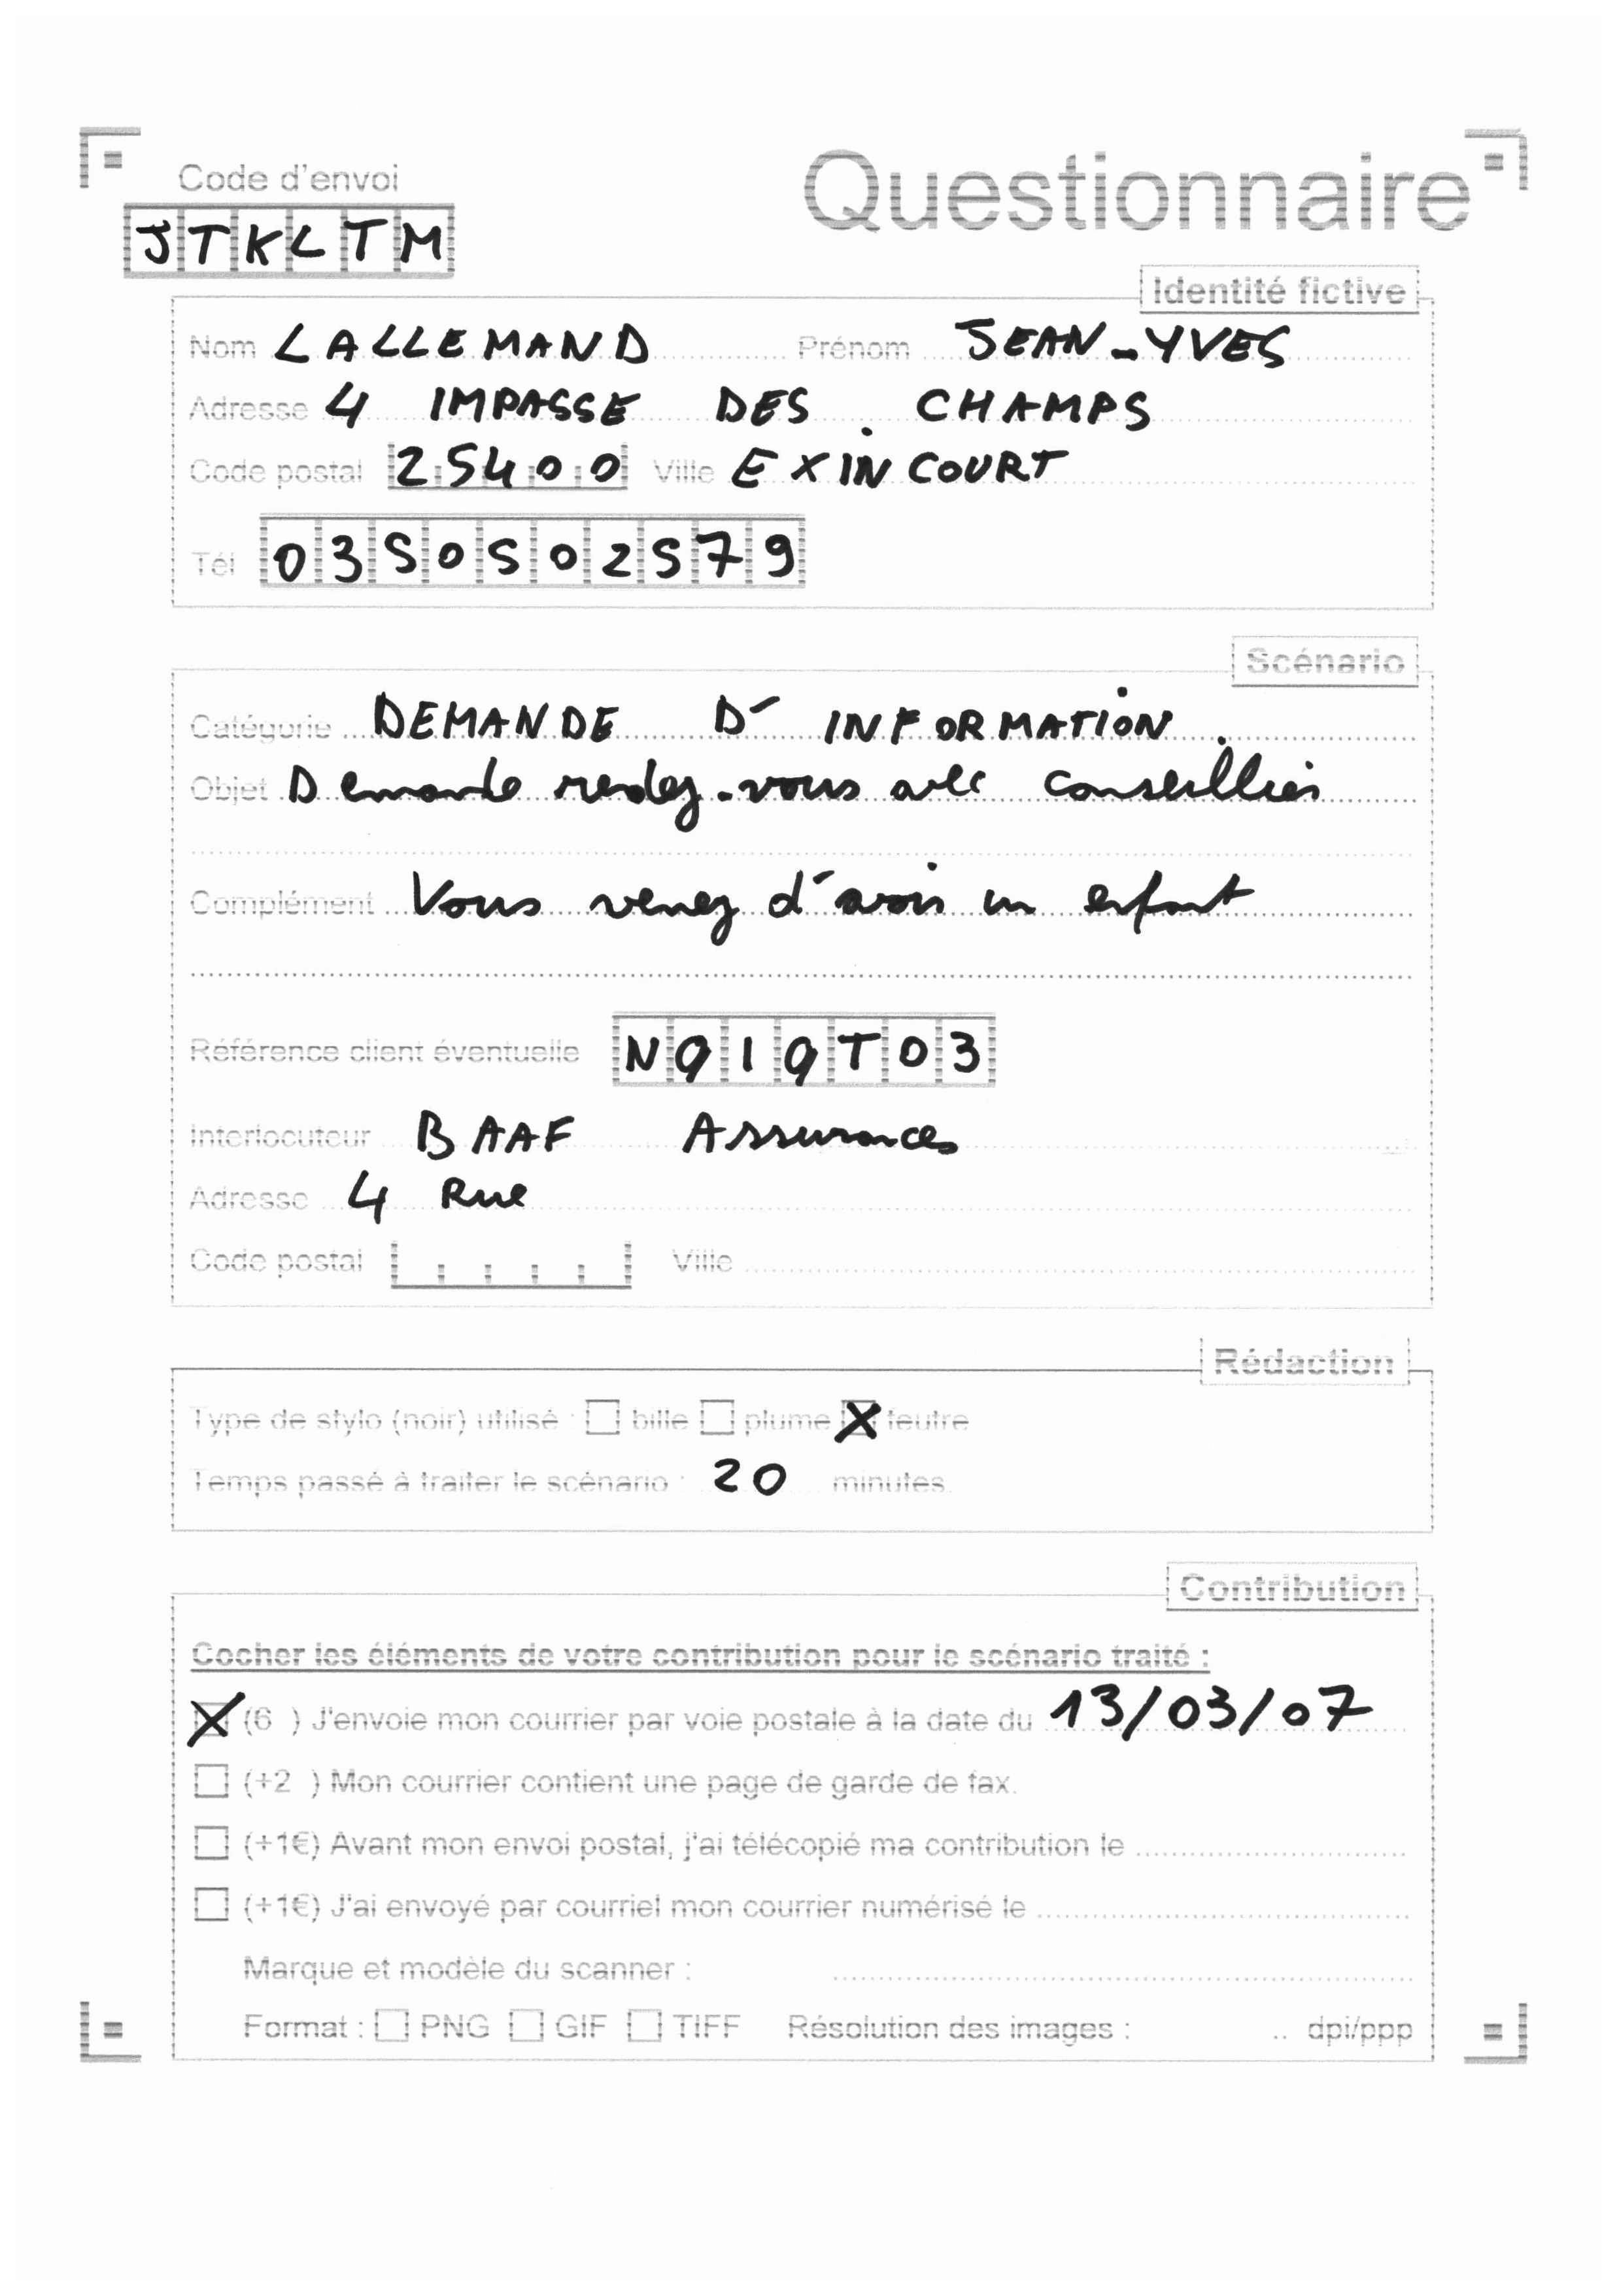 Code d'envoi
Questionnaire
JTKLTM
Identité fictive
Nom LALLEMAND Prénom JEAN-YVES
Adresse 4 IMPASSE DES CHAMPS
Code postal 25400 Ville EXINCOURT
Tél 0350502579
Scénario
Catégorie DEMANDE D'INFORMATION
Objet Demande rendez-vous avec conseillier
Complément Vous venez d'avoir un enfant
Référence client éventuelle N919T03
Interlocuteur BAAF Assurances
Adresse 4 Rue
Code postal Ville
Rédaction
Type de stylo (noir) utilisé : bille plume X feutre
Temps passé à traiter le scénario : 20 minutes.
Contribution
Cocher les éléments de votre contribution pour le scénario traité :
X (6 ) J'envoie mon courrier par voie postale à la date du 13/03/07
(+2 ) Mon courrier contient une page de garde de fax.
(+1€) Avant mon envoi postal, j'ai télécopié ma contribution le
(+1€) J'ai envoyé par courriel mon courrier numérisé le
Marque et modèle du scanner :
Format : PNG GIF TIFF Résolution des images : .. dpi/ppp